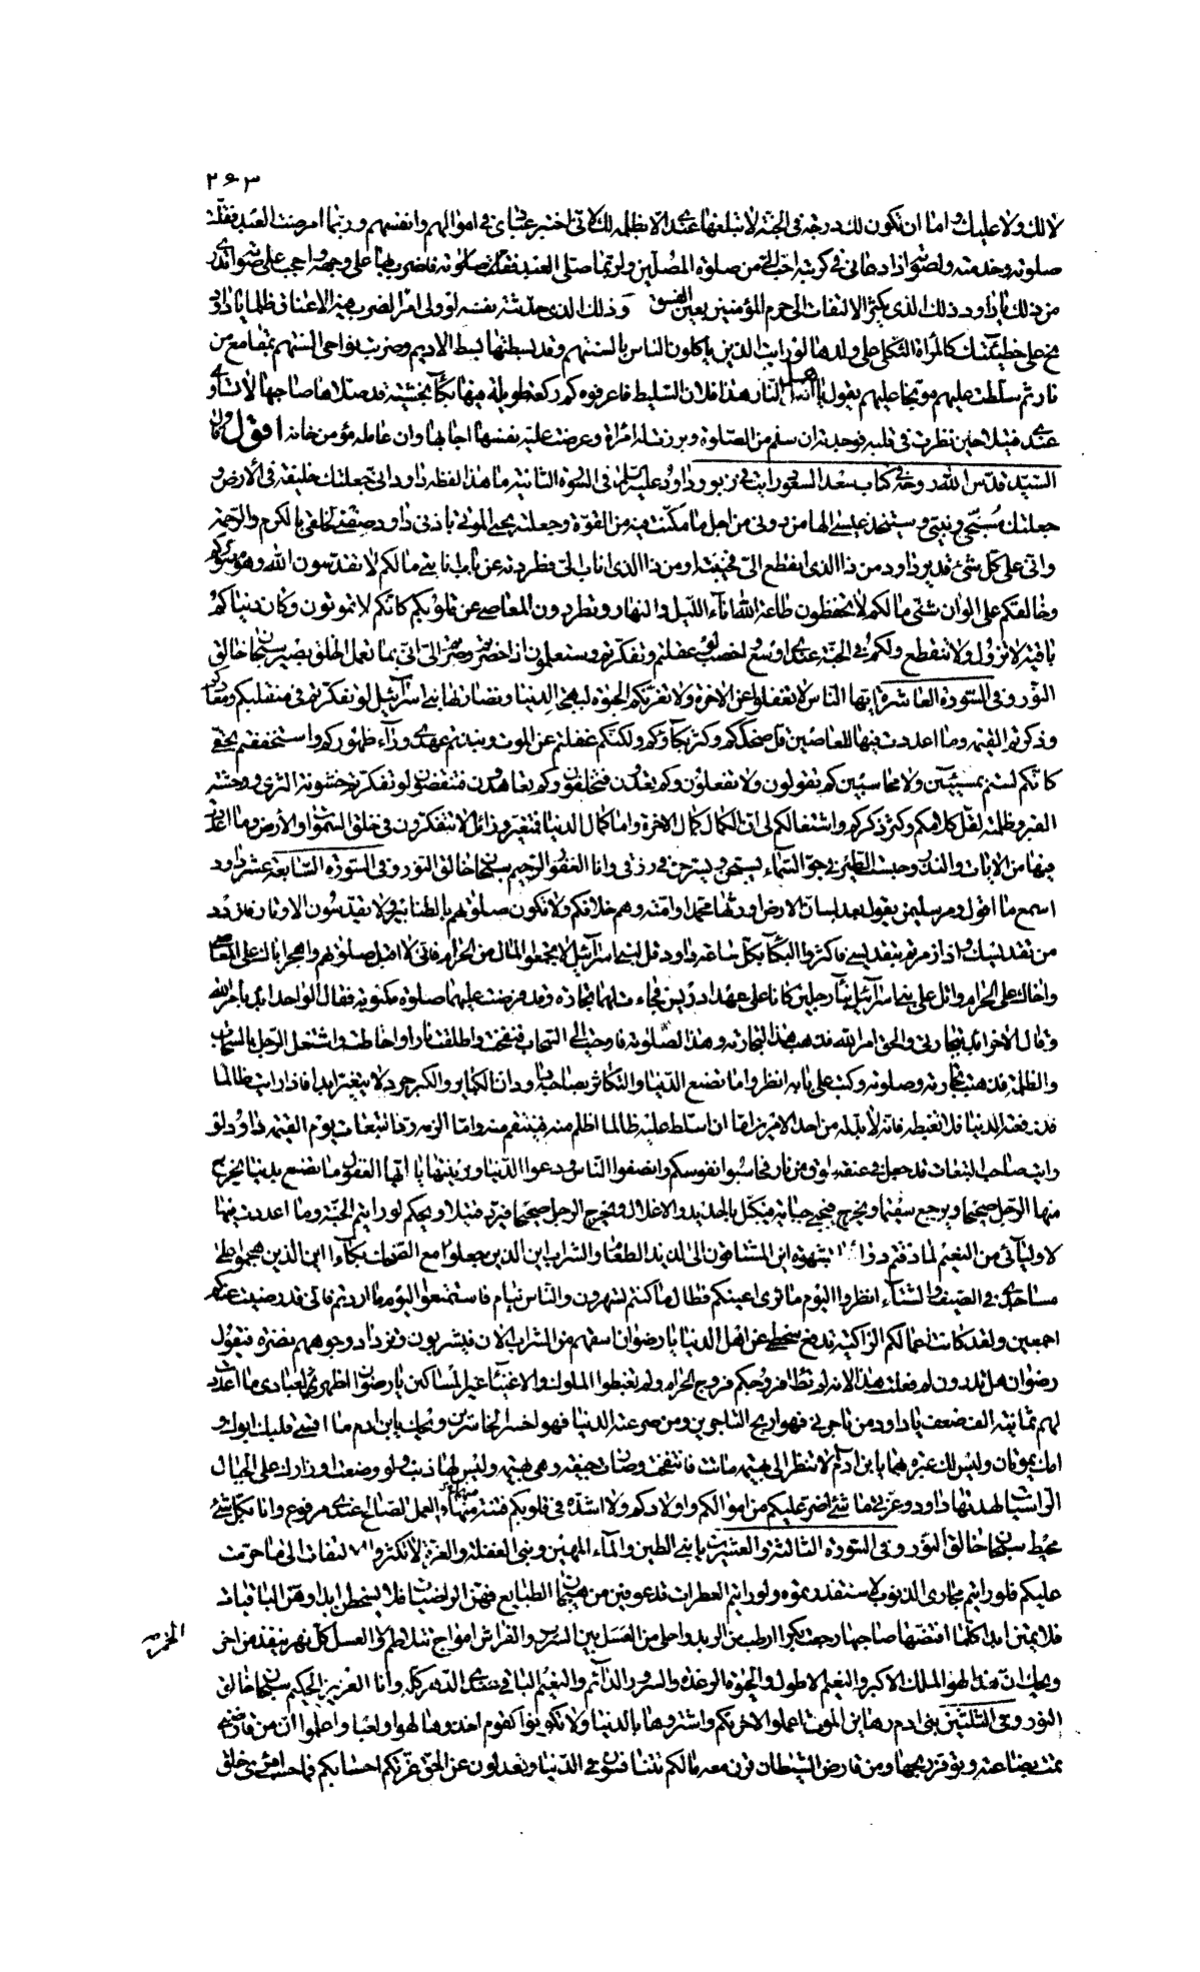 ٢٦٣
لا لك ولا عليك واما ان تكون لك درجة في الجنة لا تبلغها عندي الا بظلمه لك لاني اختبر عبادي في اموالهم وانفسهم وربما امرضت العبد فقلت
صلوته وخدمته ولصوته اذا دعاني في كربته احب الي من صلوة المصلين ولربما صلى العبد فاضرب بها على وجهه واحجب عني صوته اتدري
من ذلك يا داود ذلك الذي يكثر الالتفات الى حرم المؤمنين بعين الفسق وذلك الذي حدثته نفسه لو ولي امرا لضرب فيه الاعناق ظلما يا داود
نح على خطيئتك كالمراة الثكلى على ولدها لو رايت الذين ياكلون الناس بالسنتهم وقد بسطتها بسط الاديم وضربت نواحي السنتهم بمقامع من
نار ثم سلطت عليهم موبخا عليهم يقول يا اهل النار هذا فلان السليط فاعرفوه كم ركعة طويلة فيها بكاء بخشية قد صلاها صاحبها لا تساوي
عندي فتيلا حين نظرت في قلبه فوجدته ان سلم من الصلوة وبرزت له امراة وعرضت عليه نفسها اجابها وان عامله مؤمن خانه اقول قال
السيد قدس الله روحه في كتاب سعد السعود رايت في زبور داود عليه السلم في السورة الثانية ما هذا لفظه داود اني جعلتك خليفة في الارض و
جعلتك مسبحي ونبيي وسيتخذ عيسى الها من دوني من اجل ما مكنت فيه من القوة وجعلته يحيي الموتى باذني داود صفني لخلقي بالكرم والرحمة
واني على كل شئ قدير داود من ذا الذي انقطع الي فخيبته او من ذا الذي اناب الي فطردته عن باب انابتي ما لكم لا تقدسون الله وهو مصوركم
وخالقكم على الوان شتى ما لكم لا تحفظون طاعة الله اناء الليل والنهار وتطردون المعاصي عن قلوبكم كانكم لا تموتون وكان دنياكم
باقية لا تزول ولا تنقطع ولكم في الجنة عندي اوسع واخصب لو عقلتم وتفكرتم وستعلمون اذا حضرتم وصرتم الي اني بما يعمل الخلق بصير سبحان خالق
النور وفي السورة العاشرة ايها الناس لا تغفلوا عن الاخرة ولا تغرنكم الحيوة لبهجة الدنيا ونضارتها بني اسرائيل لو تفكرتم في منقلبكم ومعادكم
وذكرتم القيمة وما اعددت فيها للعاصين قل ضحككم وكثر بكاؤكم ولكنكم غفلتم عن الموت ونبذتم عهدي وراء ظهوركم واستخففتم بحقي
كانكم لستم بمسيئين ولا محاسبين كم تقولون ولا تفعلون وكم تعدون فتخلفون وكم تعاهدون فتنقضون لو تفكرتم في خشونة الثرى ووحشة
القبر وظلمته لقل كلامكم وكثر ذكركم واشتغالكم لي ان الكمال كمال الاخرة واما كمال الدنيا فمتغير وزائل لا تتفكرون في خلق السموات والارض وما اعددت
فيها من الايات والنذر وحبست الطير في جو السماء يسبحن ويسرحن في رزقي وانا الغفور الرحيم سبحان خالق النور وفي السورة السابعة عشر داود
اسمع ما اقول ومر سليمن يقول بعدك ان الارض اورثها محمدا وامته وهم خلافكم ولا تكون صلوتهم بالطنابير ولا يقدسون الاوتار فازدد
من تقديسك واذا زمرتم بتقديسي فاكثروا البكاء بكل ساعة داود قل لبني اسرائيل لا تجمعوا المال من الحرام فاني لا اقبل صلوتهم واهجر اباك على المعاصي
واخاك على الحرام واتل على بني اسرائيل نبأ رجلين كانا على عهد ادريس فجاءت لهما تجارة وقد فرضت عليهما صلوة مكتوبة فقال الواحد ابدا بامر الله
وقال الاخر ابدا بتجارتي والحق امر الله فذهب هذا لتجارته وهذا لصلوته فاوحيت الى السحاب فنفخت واطلقت نارا واحاطت واشتغل الرجل بالسحاب
والظلمة فذهبت تجارته وصلوته وكتب على بابه انظروا ما تصنع الدنيا والتكاثر بصاحبه داود ان الكبائر والكبر حرد لا يتغير ابدا فاذا رايت ظالما
قد رفعته الدنيا فلا تغبطه فانه لا بد له من احد الامرين اما ان اسلط عليه ظالما اظلم منه فينتقم منه واما الزمه رد التبعات يوم القيمة داود لو
رايت صاحب التبعات قد جعل في عنقه طوق من نار فحاسبوا نفوسكم وانصفوا الناس ودعوا الدنيا وزينتها يا ايها الغفول ما تصنع بدنيا يخرج
منها الرجل صحيحا ويرجع سقيما ويخرج فيحيى حياته فيكبل بالحديد والاغلال ويخرج الرجل صحيحا فيرد قتيلا ويحكم لو رايتم الجنة وما اعددت فيها
لاوليائي من النعيم لما ذقتم دواءها بشهوة اين المشتاقون الى لذيذ الطعام والشراب اين الذين جعلوا مع الضحك بكاء اين الذين هجموا على
مساجدي في الصيف والشتاء انظروا اليوم ما ترى اعينكم فطال ما كنتم تسهرون والناس نيام فاستمتعوا اليوم ما اردتم فاني قد رضيت عنكم
اجمعين ولقد كانت اعمالكم الزاكية تدفع سخطي عن اهل الدنيا يا رضوان اسقهم من الشراب الان فيشربون وتزداد وجوههم نضرة فيقول
رضوان هل تدرون لم فعلت هذا لانه لم تطا فروجكم فروج الحرام ولم تغبطوا الملوك والاغنياء غير المساكين يا رضوان اظهر لعبادي ما اعددت
لهم ثمانية الف ضعف يا داود من تاجرني فهو اربح التاجرين ومن صرعته الدنيا فهو اخسر الخاسرين ويحك يابن ادم ما اقسى قلبك ابوك و
امك يموتان وليس لك عبرة بهما يابن ادم الا تنظر الى بهيمة ماتت فانتفخت وصارت جيفة وهي بهيمة وليس لها ذنب ولو وضعت اوزارك على الجبال
الراسيات لهدتها داود وعزتي ما شئ اضر عليكم من اموالكم واولادكم ولا اشده في قلوبكم فتنة منها والعمل الصالح عندي مرفوع وانا بكل شئ
محيط سبحان خالق النور وفي السورة الثالثة والعشرين يا بني الطين والماء المهين وبني الغفلة والغرة لا تكثروا الالتفات الى ما حرمت
عليكم فلو رايتم مجاري الذنوب لاستقذرتموه ولو رايتم العطرات قد عوفين من هيجان الطبايع فهن الراضيات فلا يسخطن ابدا وهن الباقيات
فلا يمتن ابدا كلما اقتضها صاحبها رجعت بكرا ارطب من الزبد واحلى من العسل بين السرير والفراش امواج تتلاطم الخمر والعسل كل نهر ينفذ من اخر
ويحك ان هذا لهو الملك الاكبر والنعيم الاطول والحيوة الرغدة والسرور الدائم والنعيم الباقي عندي الدهر كله وانا العزيز الحكيم سبحان خالق
النور وفي الثلثين بني ادم رهاين الموت اعملوا لاخرتكم واشتروها بالدنيا ولا تكونوا كقوم اخذوها لهوا ولعبا واعلموا ان من قارضني
نمت بضاعته وتوفر ربحها ومن قارض الشيطان قرن معه ما لكم تتنافسون في الدنيا وتعدلون عن الحق غرتكم احسابكم فما حسب امرئ خلق
الخمر